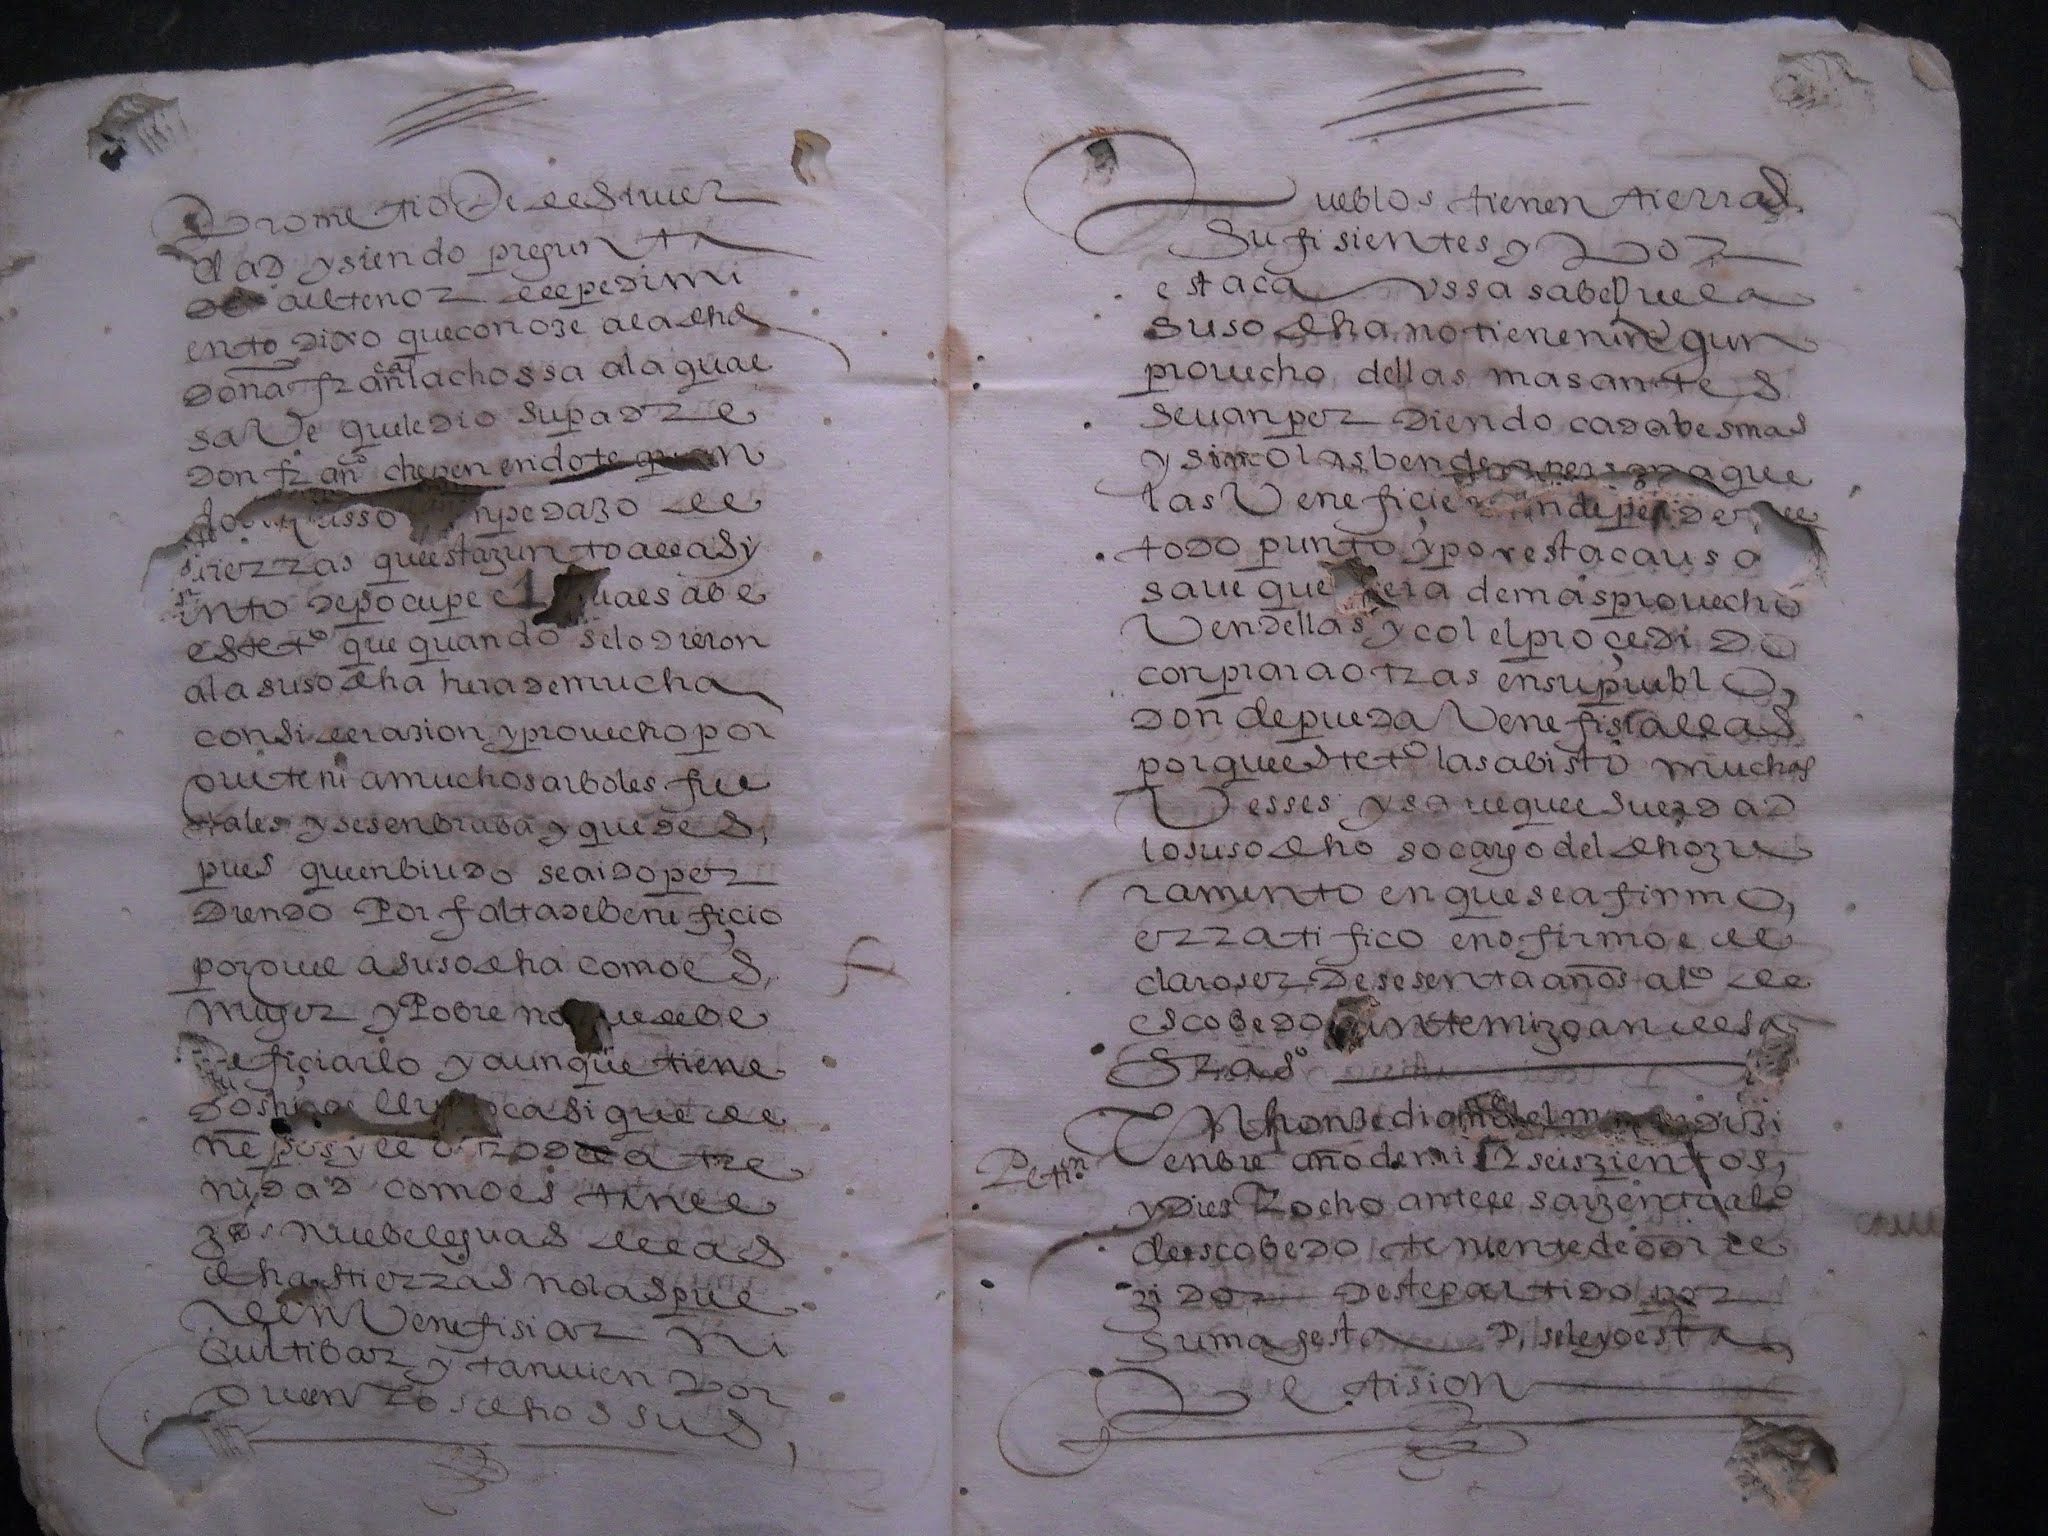 Prometio de desir ver
dad y siendo pregunta
do al tenor del pedimi
ento dixo que conoze a la dha
dona franca lachossa a la qual
save que le dio su padre
don franco chepen en dote quan
do un pedazo de
tierras que esta junto al asi
ento de pocupe el qual sabe
este to que quando se lo dieron
a la suso dha hera de mucha
consideracion y provecho por
que tenia muchos arboles fru
tales y se senbraba y que des,
pues que enbiudo se a ido per
diendo Por falta de beneficio
porque a suso dha como es,
muger y Pobre no puede be
neficiarlo y aunque tiene
dos hijos que de
ne pos y de
nidad como es tan le
jos nuebe leguas de las
dhas tierras no las pue
den Venefisiar ni
cultibar y tanvien por
quen los dhos sus,
Pueblos tienen tierras
Sufisientes y Por
esta caussa sabe que la
suso dha no tiene ningun
provecho dellas mas antes
se van perdiendo cada bes mas
y si no las bende a persona que
las Veneficie an de perder de
todo punto y por esta causa
save que sera de mas provecho
Vendellas y col el procedido
conprara otras en su pueblo,
donde pueda Venefisiallas
porque este to las a bisto muchas
Vesses y save que es verdad
lo suso dho so cargo del dho ju
ramento en que se afirmo,
e rratifico e no firmo e de
claro ser de sesenta años alo de
escobedo ante mi joan de sa
n

En honze dias del mes de dizi
enbre año de mil y seiszientos,
y Dies y ocho ante el sarjento alo
de escobedo teniente de corre
jidor deste partido por
su magesta P, se leyo esta
Petision
Petin